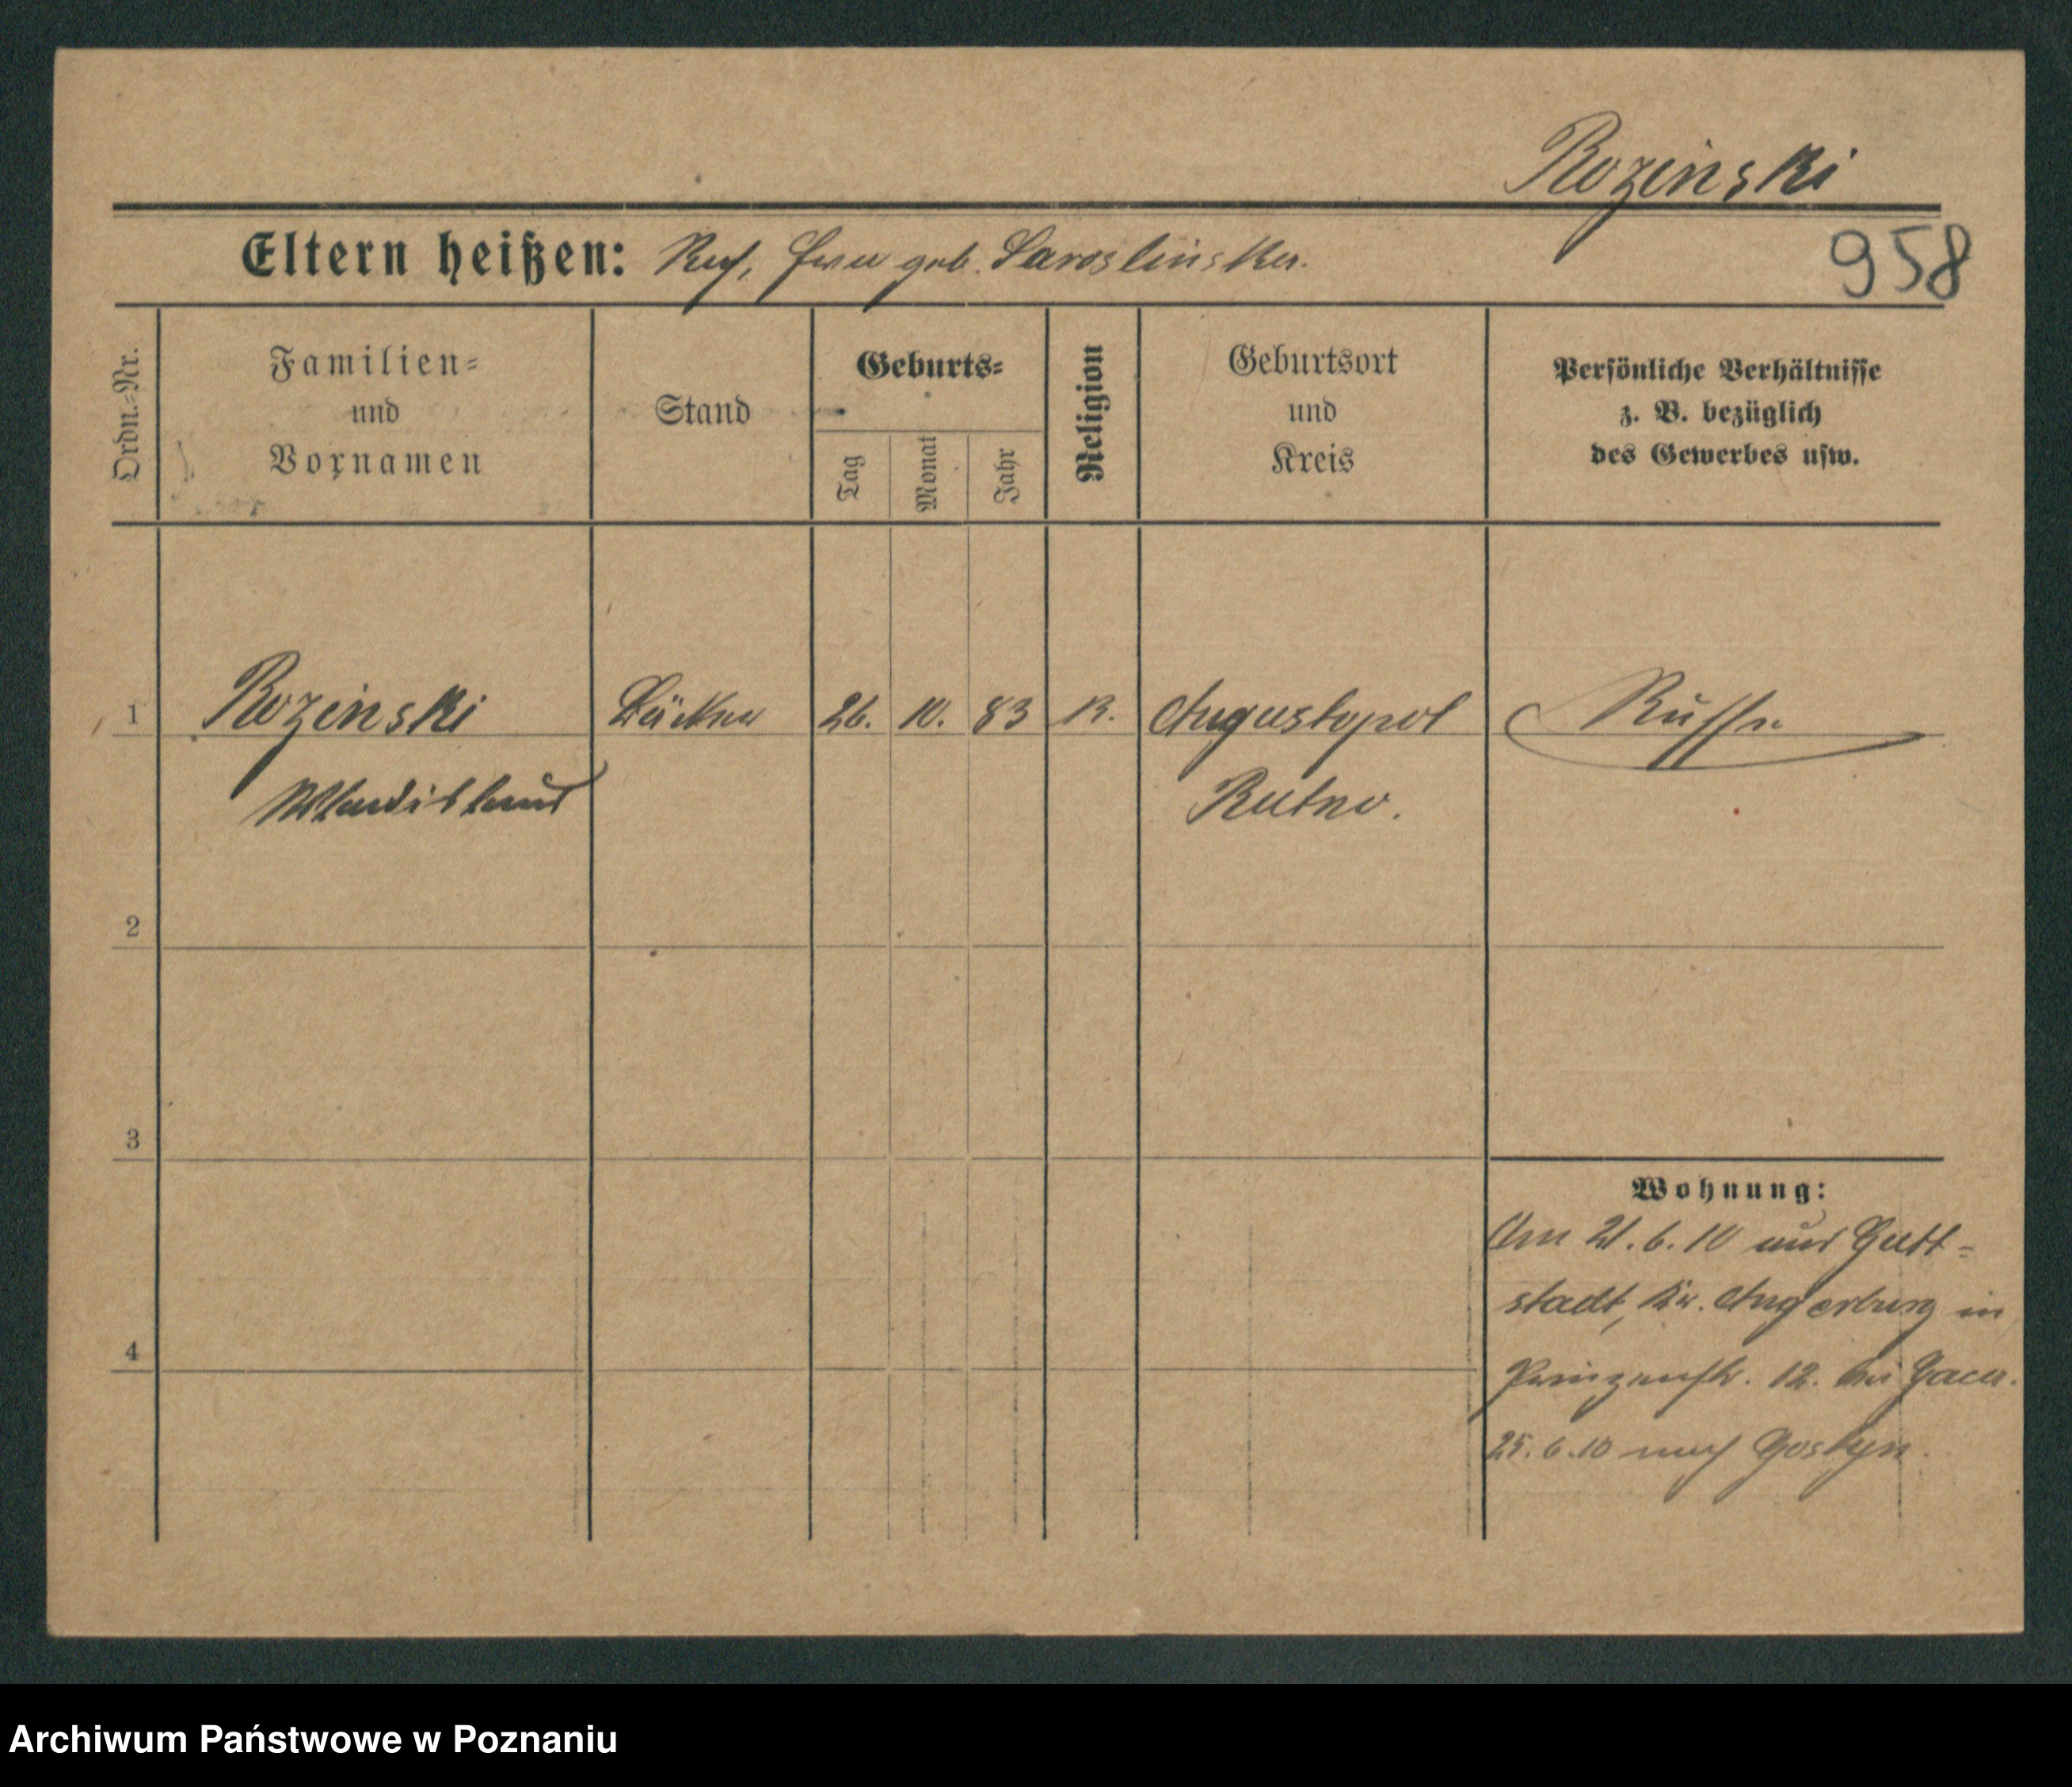 Rozinski
Eltern heißen: geb.
958
Ordn.-Nr.
Familien-
und
Vornamen
Stand
Geburts-
Tag
Monat
Jahr
Religion
Geburtsort
und
Kreis
Persönliche Verhältnisse
z. B. bezüglich
des Gewerbes usw.
1 Rozinski Bäcker 26. 10. 83 K. Augustopol Russe
Wladislaus Kutno.
2
3
Wohnung:
Am 21.6.10 aus Gutt-
stadt, Kr. Angerburg in
4
Prinzenstr. 12. bei
25.6.10 nach Gostyn.
Archiwum Państwowe w Poznaniu